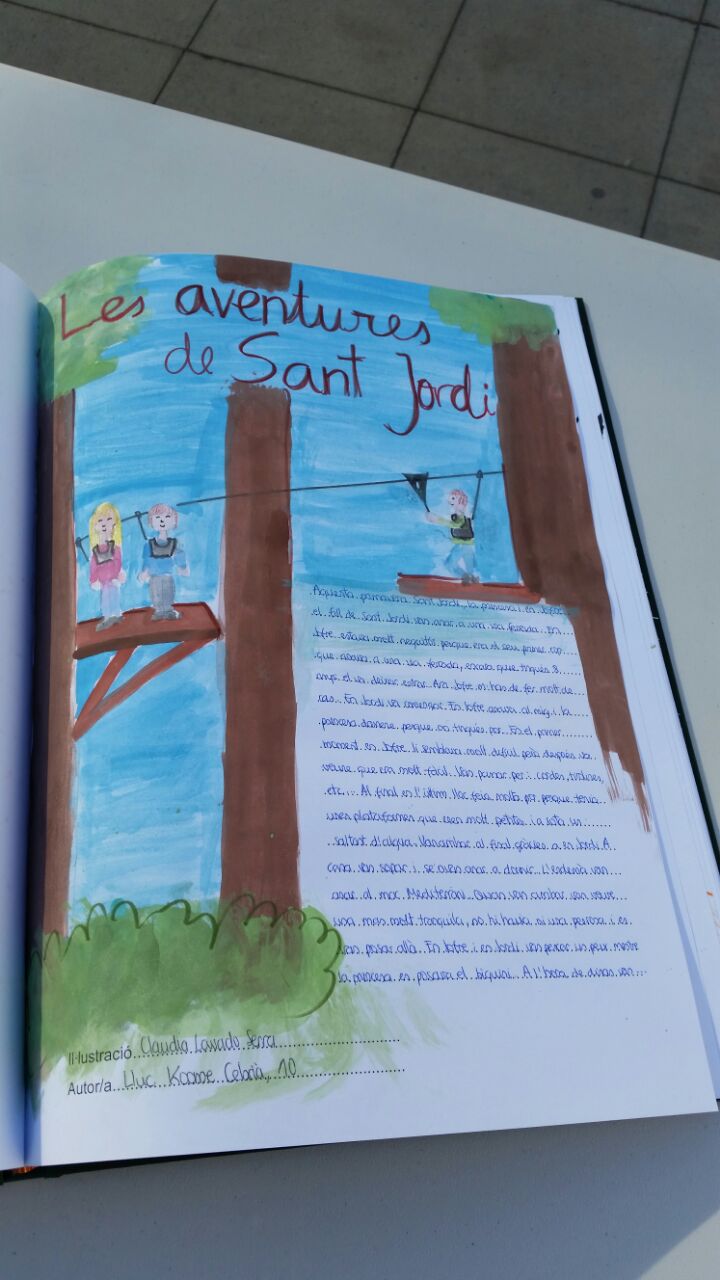 Les aventures
de Sant Jordi
Aquesta primavera Sant Jordi, la princesa i en Jofre
el fill de Sant Jordi van anar a una via ferrada. En
Jofre estava molt neguitós perque era el seu primer cop
que anava a una via ferrada, encara que tingués 8
anys el va deixar entrar. Ara Jofre
cas. En Jordi va començar. En Jofre anava al mig i la
princesa darrere perque no tingués por. En el primer
moment en Jofre li semblava molt difícil però després va
veure que era molt fàcil. Van passar per i cordes tirolines,
etc... Al final en l'últim lloc feia molta por perque tenia
unes plataformes que eren molt petites i a sota un
saltant d'aigua. Van arribar al final gràcies a en Jordi. A
casa van sopar i se'n van anar a dormir. L'endemà van
anar al mar Mediterrani. Quan van arribar van veure
una mar molt tranquila, no hi havia ni una persona i es
van posar allà. En Jofre i en Jordi van pescar un peix mentre
la princesa es posava el biquini. A l'hora de dinar van
Il·lustració Claudia Lavado Serra
Autor/a Lluc Kosme Cebrià, 10